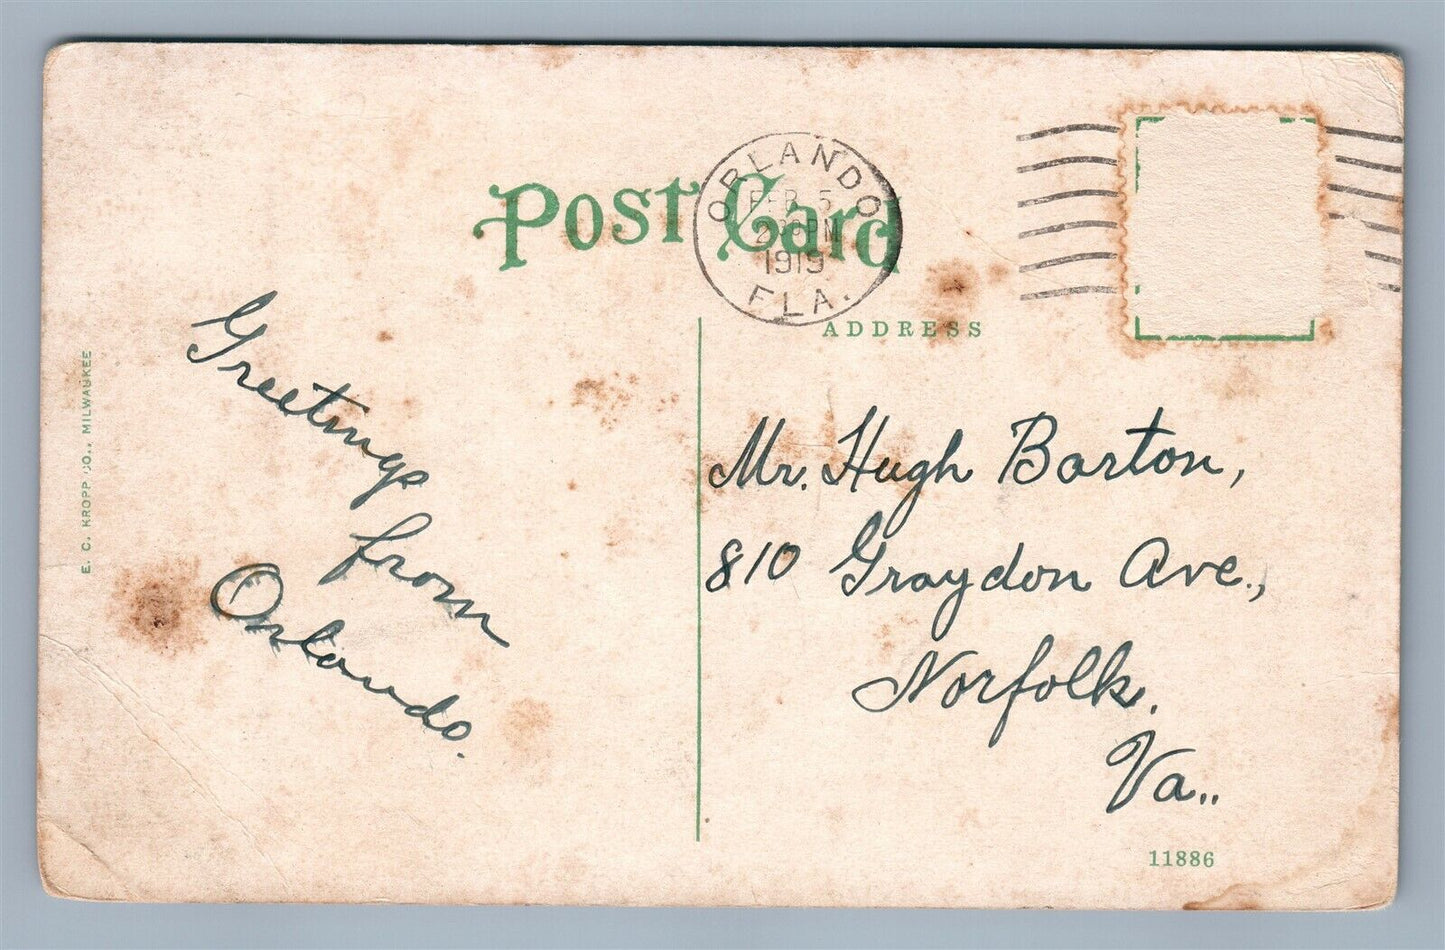 Post Card
ORLANDO
FEB 5
230 PM
1919
FLA.
ADDRESS
Greetings
from
Orlando.
Mr. Hugh Barton,
810 Graydon Ave.,
Norfolk.
Va..
E. C. KROPP CO., MILWAUKEE
11886